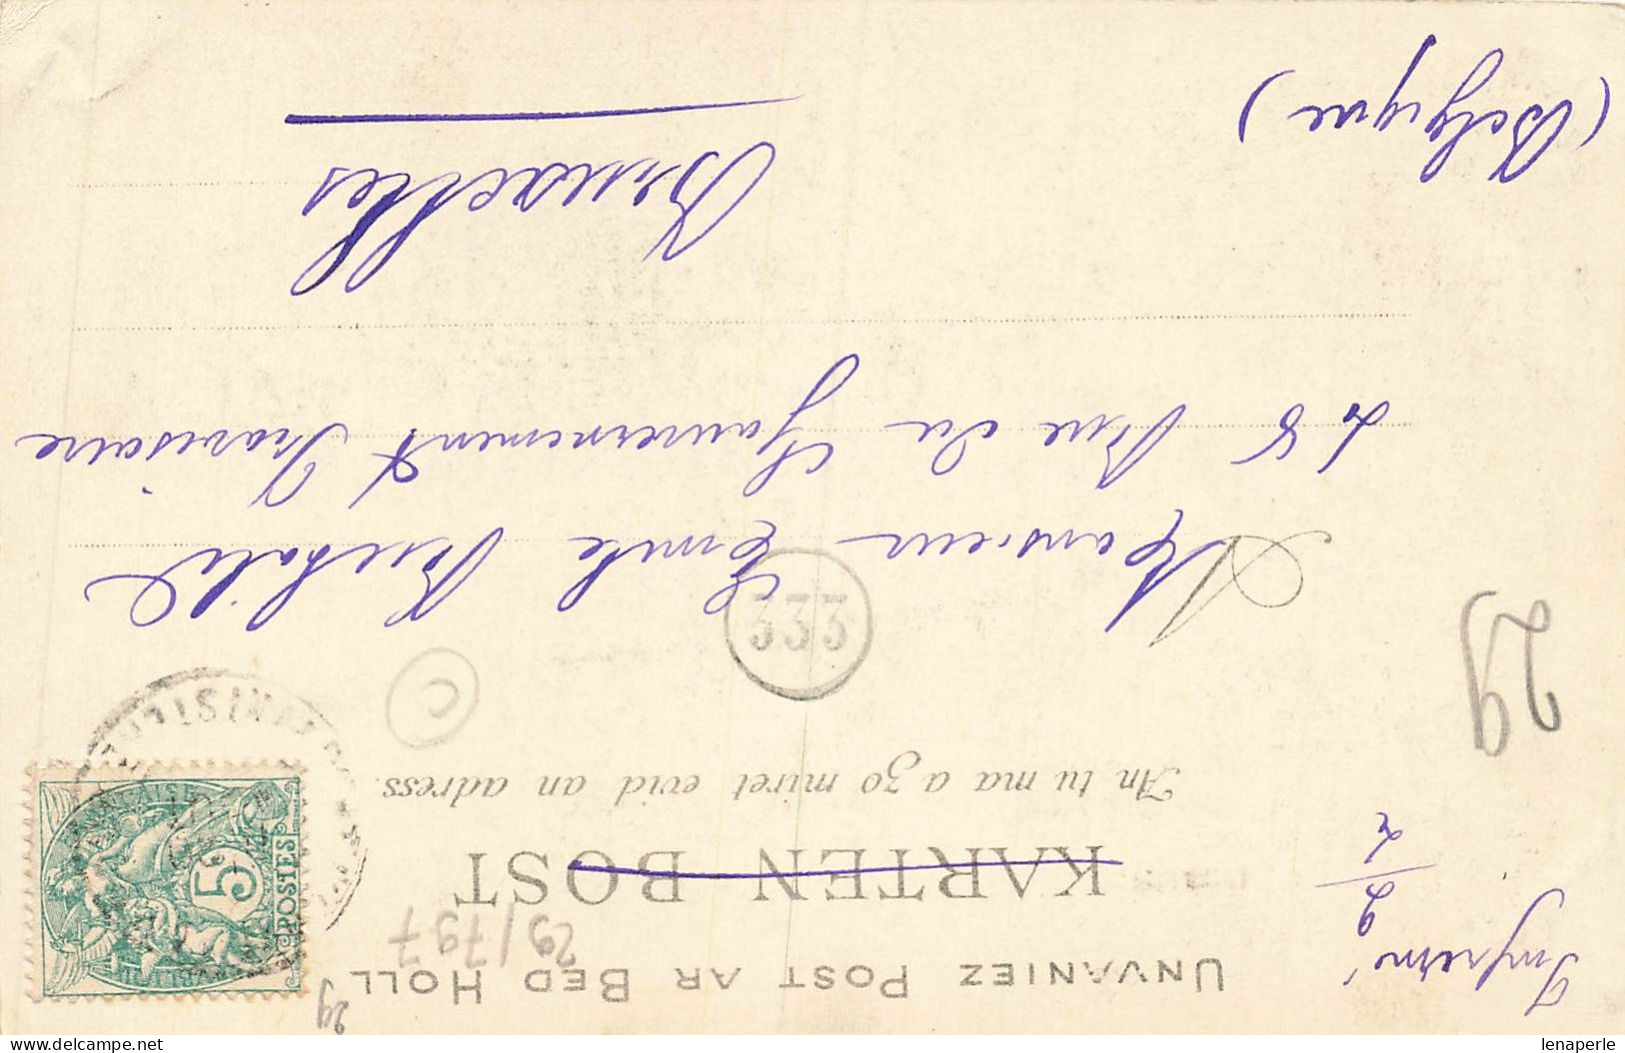 UNVANIEZ POST AR BED HOLL
KARTEN BOST
An tu ma a zo miret evid an adress.
Imprimé
29/797
29
29
C
333
POSTES
5c
Monsieur Emile
48 Rue du Gouvernement Provisoire
Bruxelles
(Belgique)
delcampe.net
lenaperle